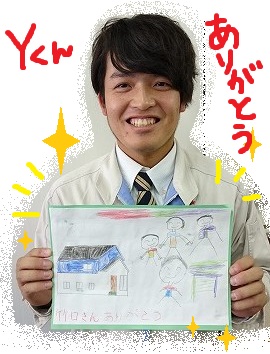 Yくん
ありがとう
さんありがとう